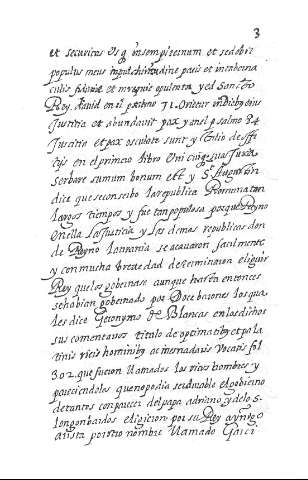 3
et securitas usq in sempiternum et sedebit
populus meus in pulchritudine pacis et in taberna
culis fiducie et in requie opulenta y ed Sancto
Rey david en el psalmo 71 Orietur in diebus eius
Justitia et abundavit pax y en el psalmo 84
Justitia et pax osculate sunt y
en el primero libro Juxta
servare sumum bonum est y St Agustin
dice que se conserbo la republica Romana tan
largos tiempos y fue tan populosa porque Reyno
en ella la Justicia y las demas republicas don
de Reyno la tirania se acavaron facilmente
y con mucha brevedad determinaron elegir
Rey que los gobernase aunque hasta entonces
se habian gobernado por Doce barones los qua
les dice Geronymo de Blancas en los dichos
sus comentarios titulo de optimatibus et pala
tinis ricis hominibus ac mesnadariis vocatis fol
302. que fueron llamados los ricos hombres y
pareciendoles que no podia ser durable el gobierno
de tantos con parecer del papa adriano y de los
longonbardos eligieron por su Rey a ynigo
arista por otro nombre llamado Garci